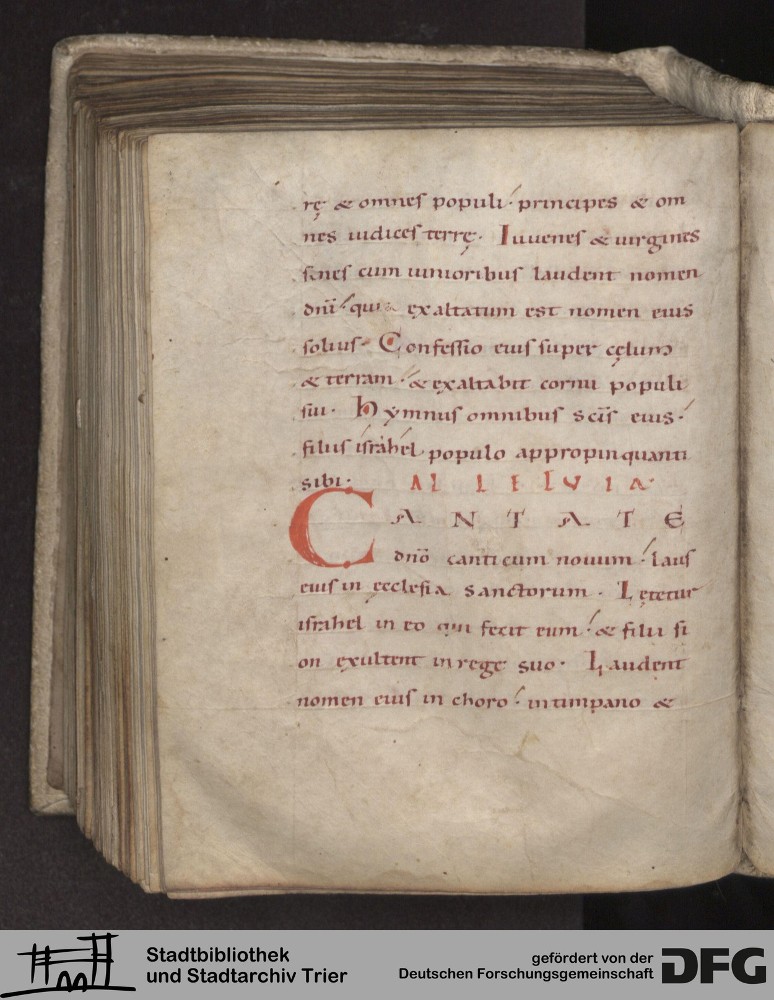 rę & omnes populi· principes & om
nes iudices terrę· Iuvenes & uirgines
senes cum iunioribus laudent nomen
dñi· quia exaltatum est nomen eius
solius· Confessio eius super cęlum
& terram· & exaltabit cornu populi
sui· Hymnus omnibus scīs eius·
filiis israhel populo appropinquanti
sibi· ALLELVIA·
CANTATE
dño canticum nouum· laus
eius in ecclesia sanctorum· Lętetur
israhel in eo qui fecit eum· & filii si
on exultent in rege suo· Laudent
nomen eius in choro· in timpano &
Stadtbibliothek
und Stadtarchiv Trier
gefördert von der
Deutschen Forschungsgemeinschaft DFG